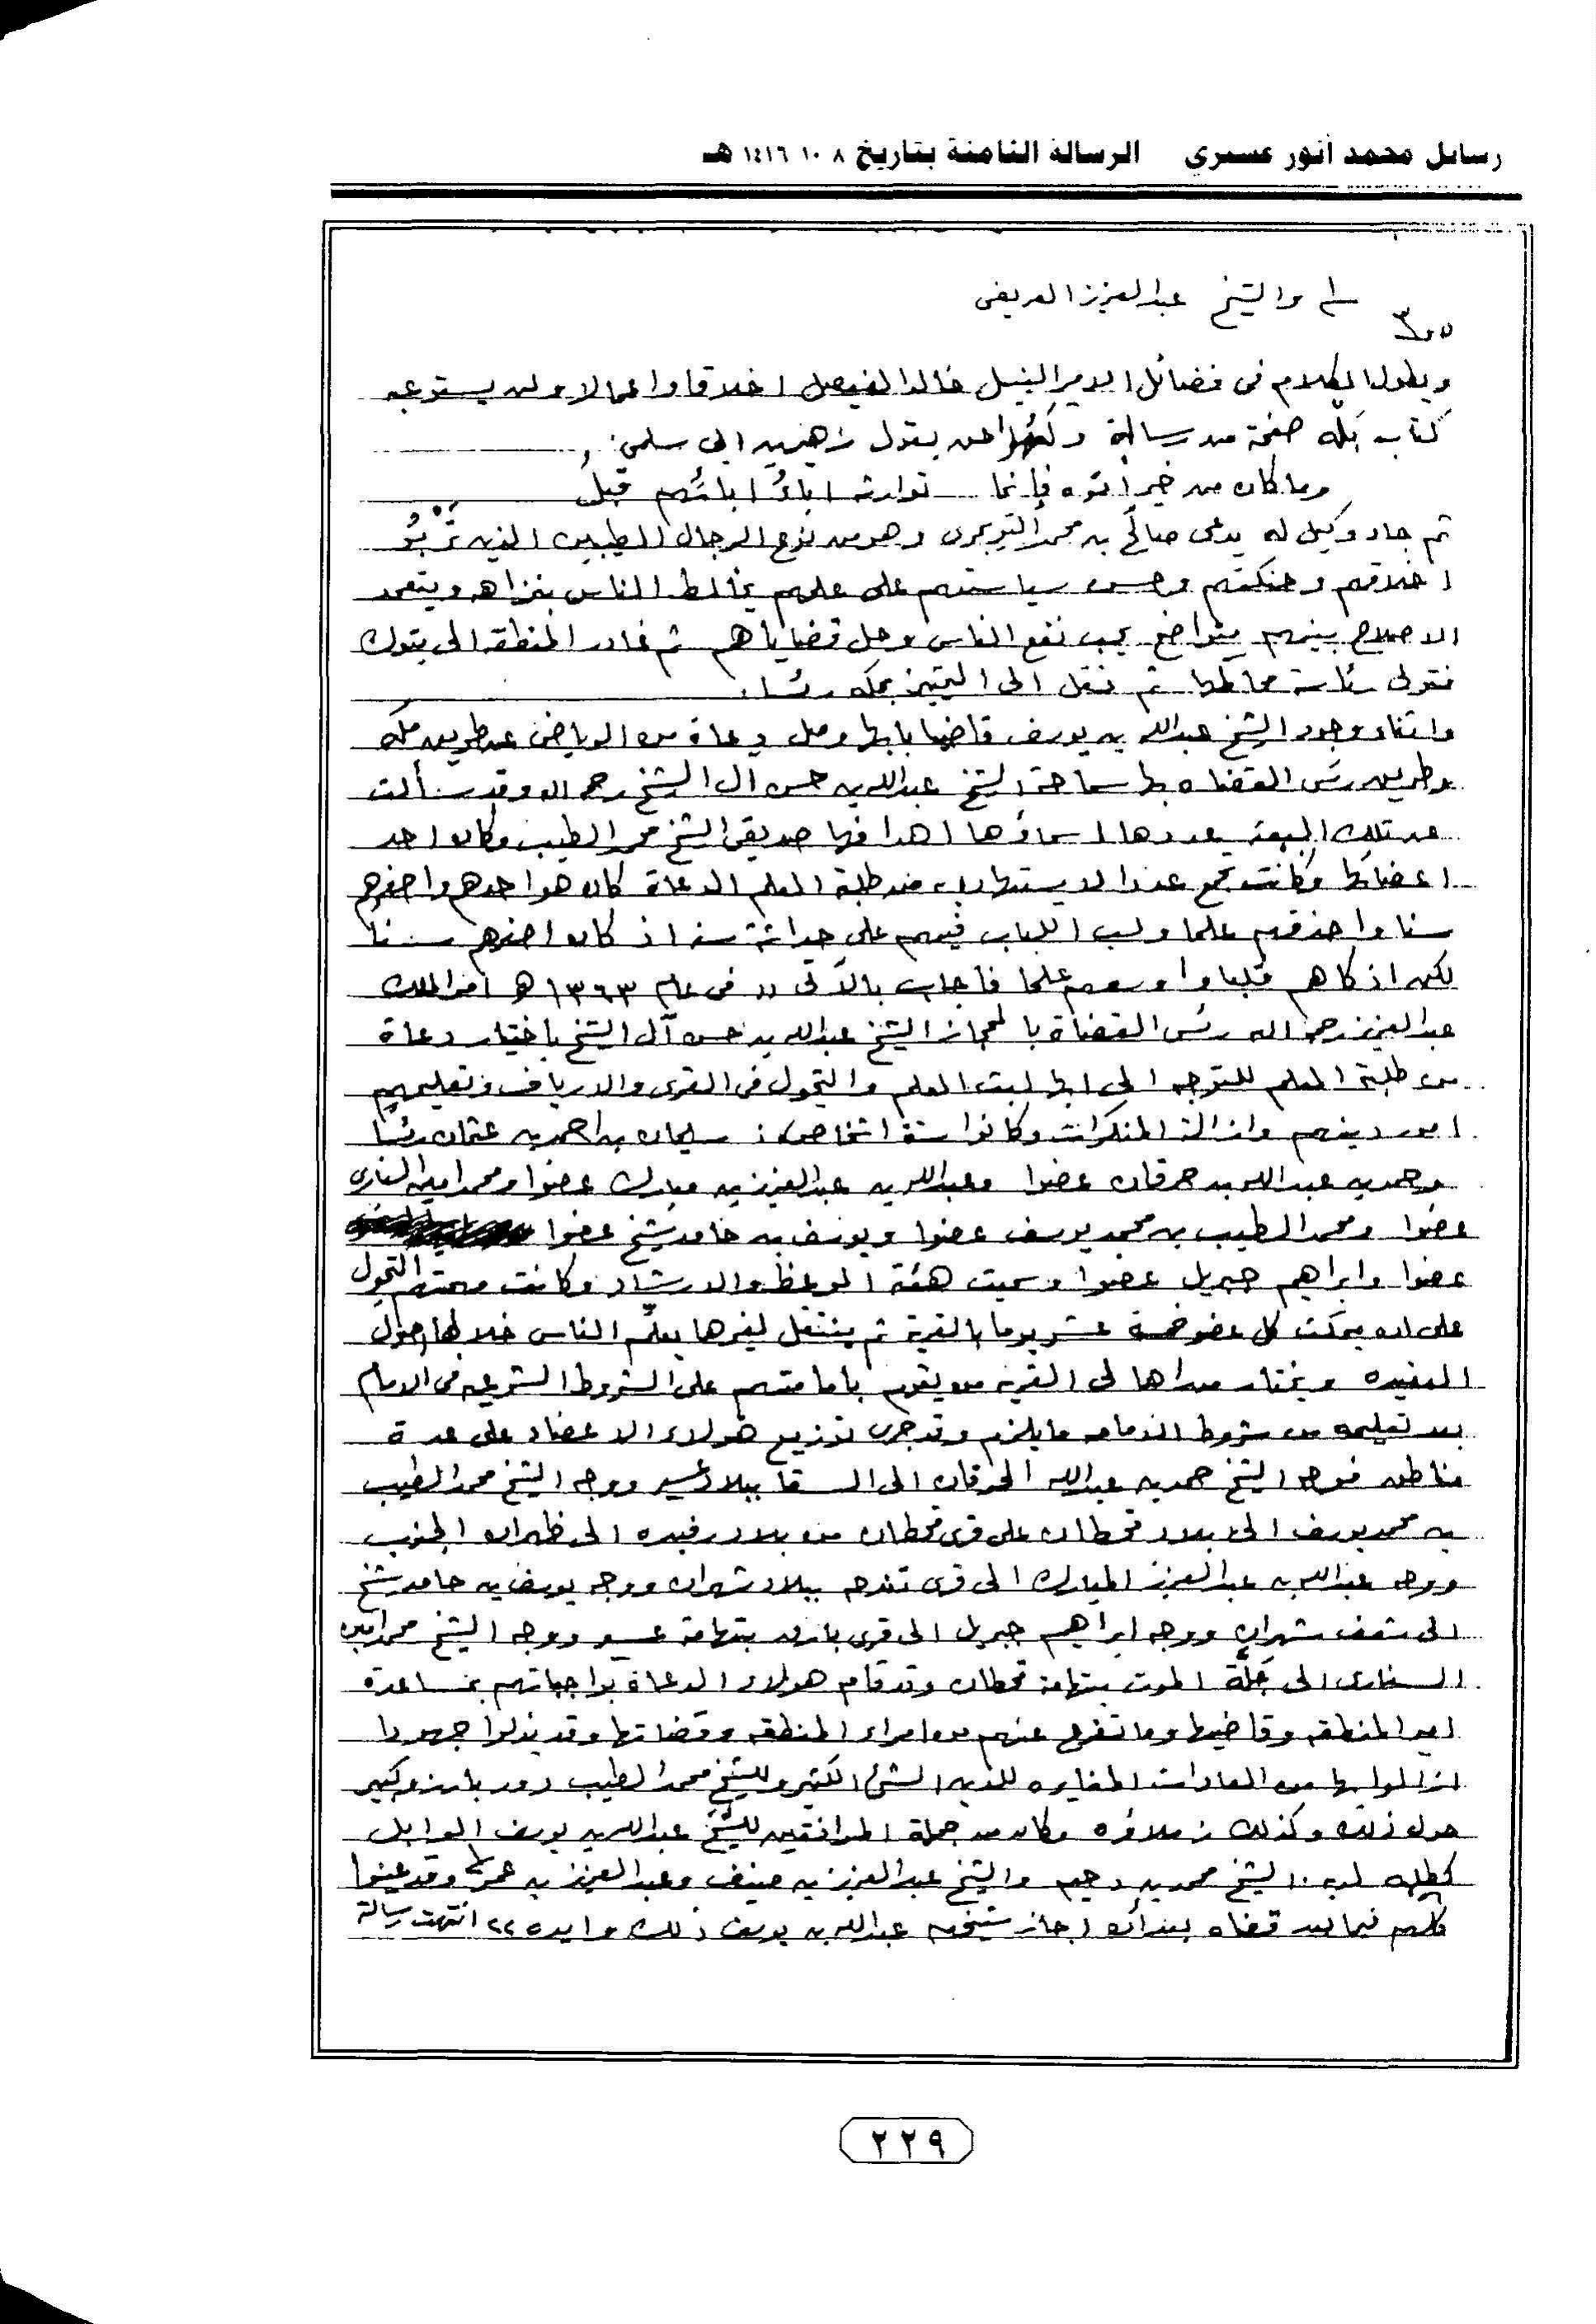 رسائل محمد أنور عسيري الرسالة الثامنة بتاريخ ٨ ١٠ ١٤١٦هـ
والشيخ عبدالعزيز العريفى
ص٣
ويطول الكلام فى فضائل الامير النبيل خالد الفيصل اخلاقا واعمالا ولن يستوعبه
كتاب بله صفحة من رسالة يقول زهير بن ابى سلمى:
وما كان من خير أتوه فإنما توارثه اباءُ ابائهم قبلُ
ثم جاء وكيل له يدعى صالح بن محمد التويجرى وهو من نوع الرجال الطيبين الذين
اخلاقهم وحنكتهم وحسن سياستهم على علمهم يخالط الناس بنزاهه ويتعمد
الاصلاح بينهم بتواضع يحب نفع الناس وحل قضاياهم ثم غادر المنطقه الى تبوك
فتولى رئاسة محاكمها ثم نقل الى التمييز بمكه رئسا.
واثناء وجود الشيخ عبدالله بن يوسف قاضيا بابها وصل دعاة من الرياض عن طريق مكه
وطريق رئس القضاه بها سماحة الشيخ عبدالله بن حسن ال الشيخ رحمه الله وقد سألت
عن تلك البعثه عددها اسماؤها اهدافها صديقى الشيخ محمد الطيب وكان احد
اعضائها وكانت تجمع عددا لا يستهان به من طلبة العلم الدعاة كان هو احدهم واصغرهم
سنا واحذقهم علما ولب اللباب فيهم على حداثة سنه اذ كان اصغرهم سنا
لكنه اذكاهم قلبا واوسعهم علما فأجاب بالآتى ,, فى عام ١٣٦٣ هـ امر الملك
عبدالعزيز رحمه الله رئس القضاة بالحجاز الشيخ عبدالله بن حسن آل الشيخ باختيار دعاة
من طلبة العلم للتوجه الى ابها لبث العلم والتجول فى القرى والارياف وتعليمهم
امور دينهم وازالة المنكرات وكانوا ستة اشخاص: سليمان بن احمد بن عثمان رئسا
وحمد بن عبدالله بن حمرقان عضوا وعبدالله بن عبدالعزيز بن مبارك عضوا ومحمد امين السنارى
عضوا ومحمد الطيب بن محمد يوسف عضوا ويوسف بن حامد شيخ عضوا
عضوا وابراهيم جبريل عضوا وسميت هئة الوعظ والارشاد وكانت مهمتهم التجول
على ان يمكث كل عضو خمسة عشر يوما بالقرية ثم ينتقل لغيرها يعلّم الناس خلالها اصول
العقيده ويختار من اهالى القريه من يقوم بامامتهم على الشروط الشرعيه فى الامام
بعد تعليمه من شروط الامامه مايلزم وقد جرى توزيع هولاء الاعضاء على عدة
مناطق فوجه الشيخ حمد بن عبدالله الحرقان الى السقا ببلاد عسير ووجه الشيخ محمد الطيب
بن محمد يوسف الى بلاد قحطان على قرى قحطان من بلاد رفيده الى ظهران الجنوب
ووجه عبدالله بن عبدالعزيز المبارك الى قرى تندحه ببلاد شهران ووجه يوسف بن حامد شيخ
الى شعف شهران ووجه ابراهيم جبريل الى قرى بارق بتهامة عسير ووجه الشيخ محمد امين
السنارى الى جَلّة الموت بتهامة قحطان وقد قام هولاء الدعاة بواجباتهم بمساعدة
امير المنطقه وقاضيها وما تفرع عنهم من امراء المنطقه وقضاتها وقد بذلوا جهودا
ازالوا بها من العادات المغايره للدين الشئ الكثير وللشيخ محمد الطيب دور بارز وكبير
حول ذلك وكذلك زملاؤه وكان من جملة المرافقين للشيخ عبدالله بن يوسف الوابل
كطلبه لديه .. الشيخ محمد بن دحيم والشيخ عبدالعزيز بن منيف وعبدالعزيز بن عمر وقد عينوا
كلهم فيما بعد قضاه بعد أن اجاز شيخهم عبدالله بن يوسف ذلك وايده ,, انتهت رسالة
٢٢٩